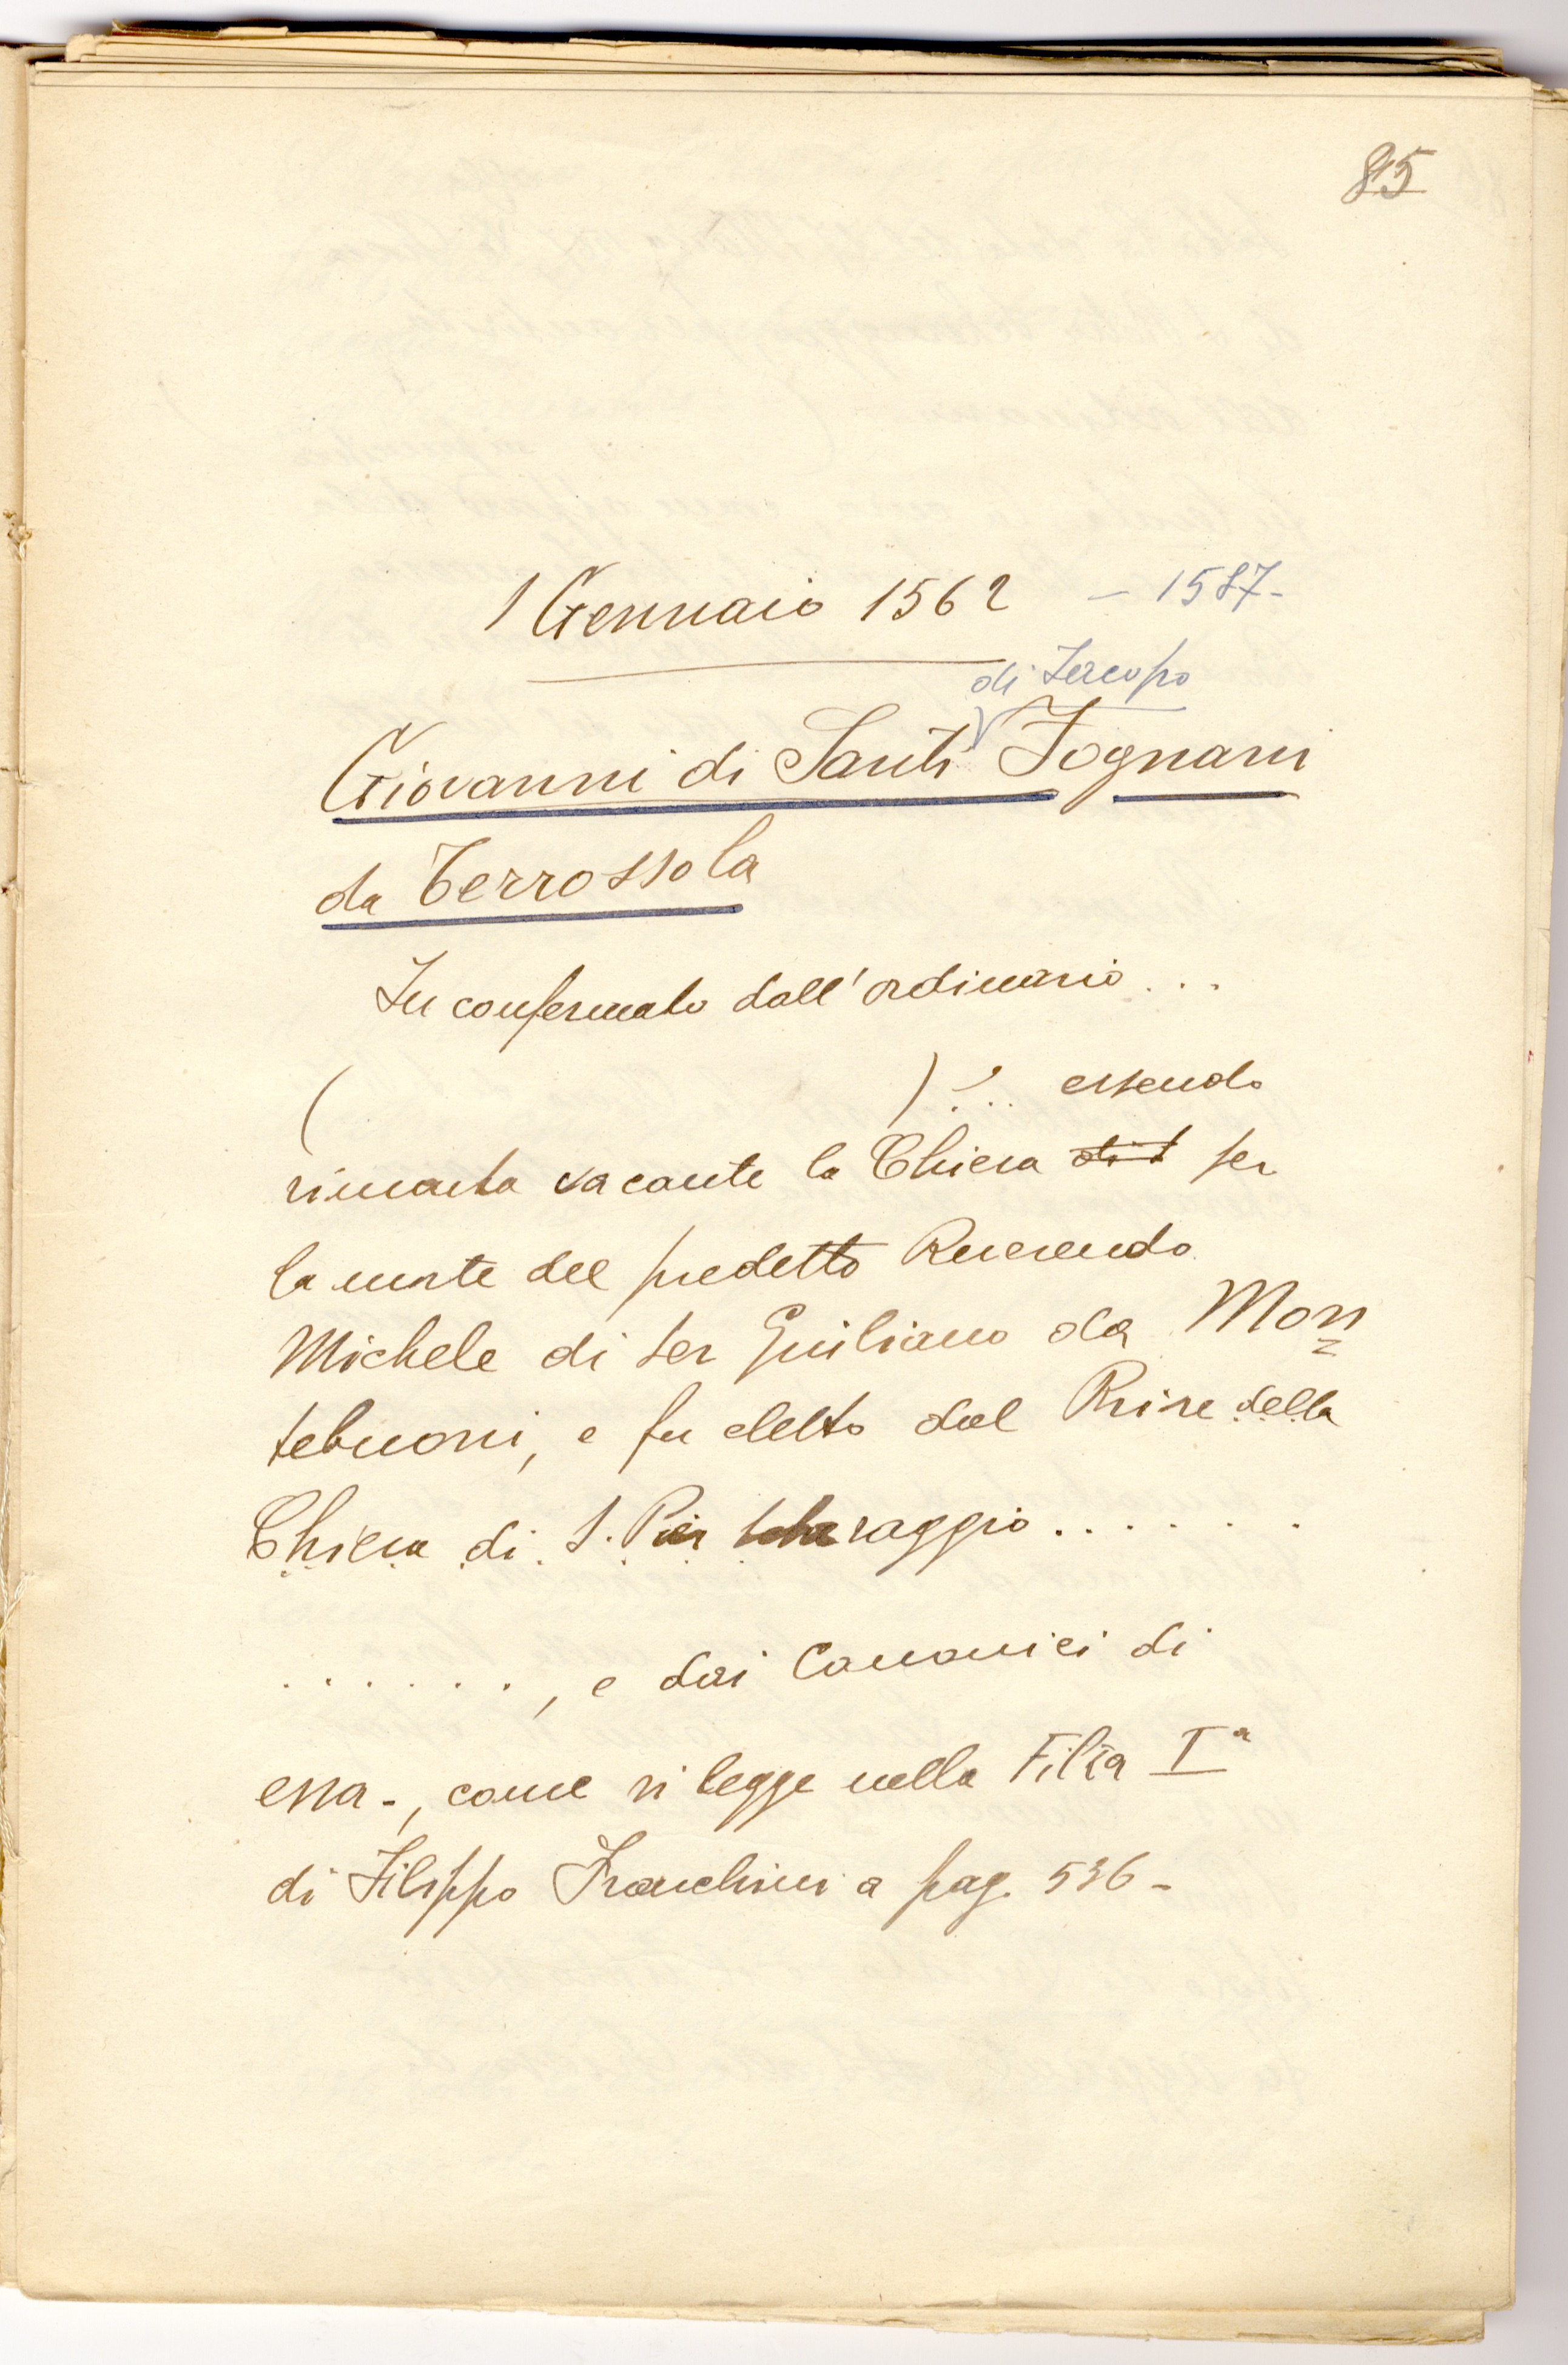 85
1 Gennaio 1562 – 1587-
di Iacopo
Giovanni di Santi Fognani
da Terrossola
Fu confermato dall'ordinario ...
( ) ... essendo
rimasta vacante la Chiesa per
la morte del predetto Reverendo
Michele di ser Giuliano da Mon
tebuoni, e fu eletto dal Priore della
Chiesa di S. Pier Scheraggio . . . . . . .
. . . . . . , e dai Canonici di
essa -, come si legge nella Filza Iª
di Filippo Franchini a pag. 536 -